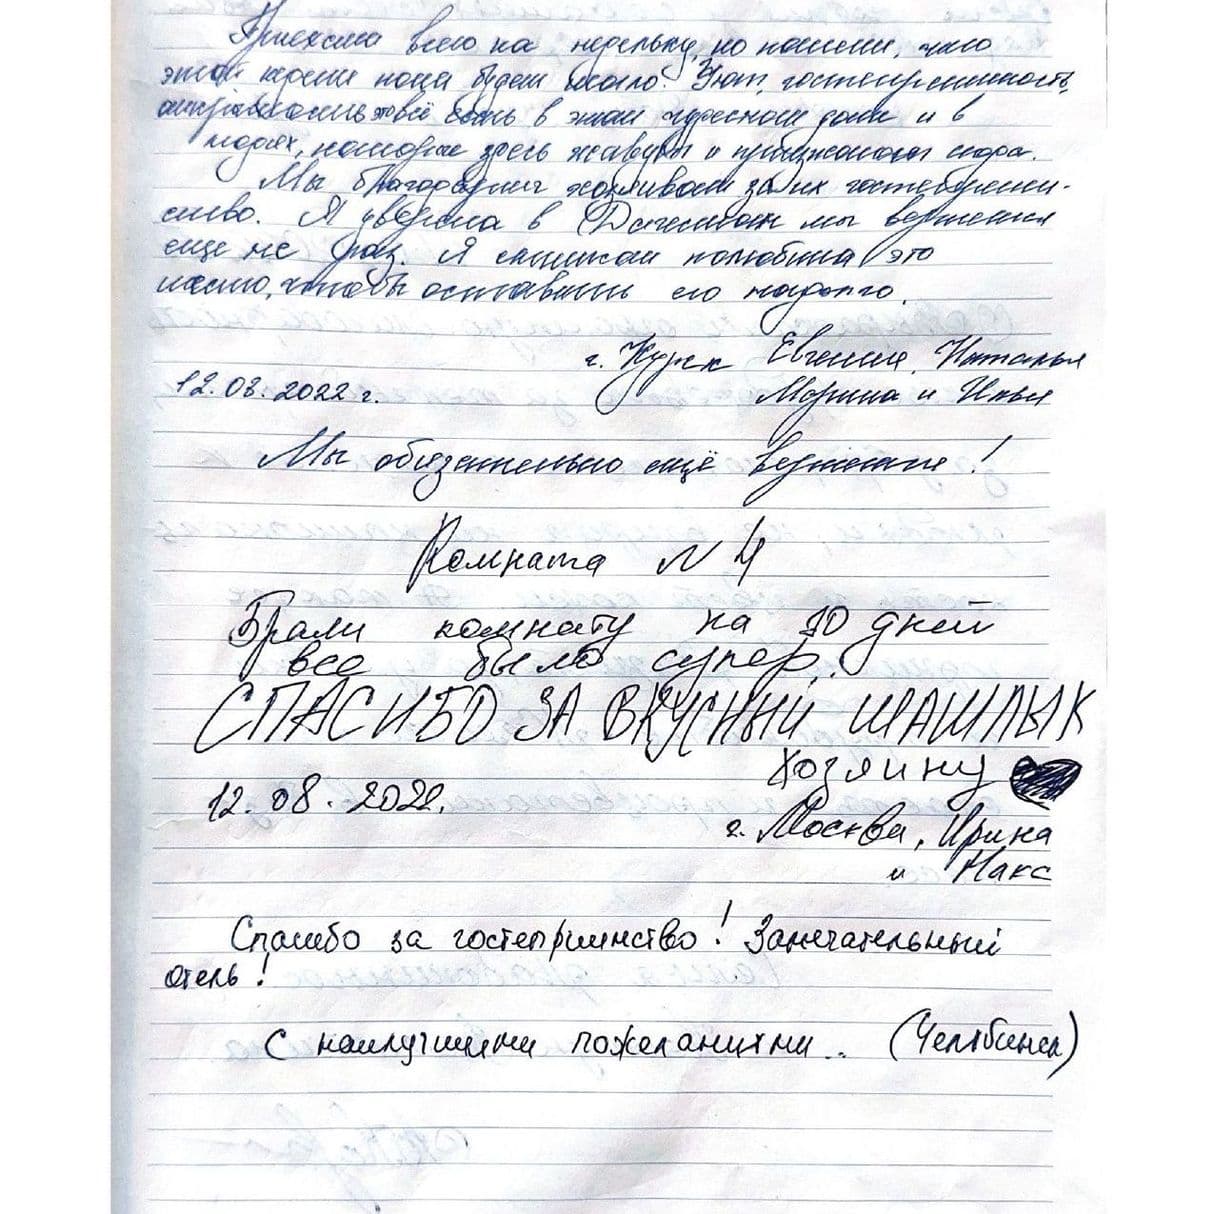 Приехали всего на недельку, но поняли, что
этой нам будет мало. Уют, гостеприимность,
всё есть в этом чудесном доме и в
людях, которые здесь живут и
Мы благодарим хозяинов за их гостеприим-
ство. Я уверена в Дагестан мы вернемся
еще не раз. Я слишком полюбила это
место, чтобы оставить его надолго.
г. Курск Евгения, Наталья
12.08.2022 г. Марина и Илья
Мы обязательно ещё вернемся!
Комната N 4
Брали комнату на 10 дней
все было супер.
СПАСИБО ЗА ВКУСНЫЙ ШАШЛЫК
хозяину
12.08.2022.
г. Москва, Ирина
и Макс
Спасибо за гостеприимство! Замечательный
отель!
С наилучшими пожеланиями.. (Челябинск)